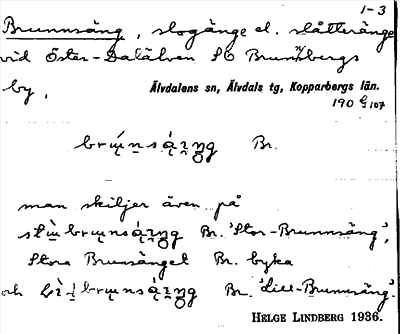 1-3
Brunnsäng, slogänge el. slåtteränge
vid Öster-Dalälven SO Brunnsbergs
by,
Älvdalens sn, Älvdals tg, Kopparbergs län.
190 G 107
Br.
man skiljer även på
Br. 'Stor-Brunnsäng',
Stora Brunsänget Br. byka
och Br. 'Lill-Brunnsäng'.
HELGE LINDBERG 1936.